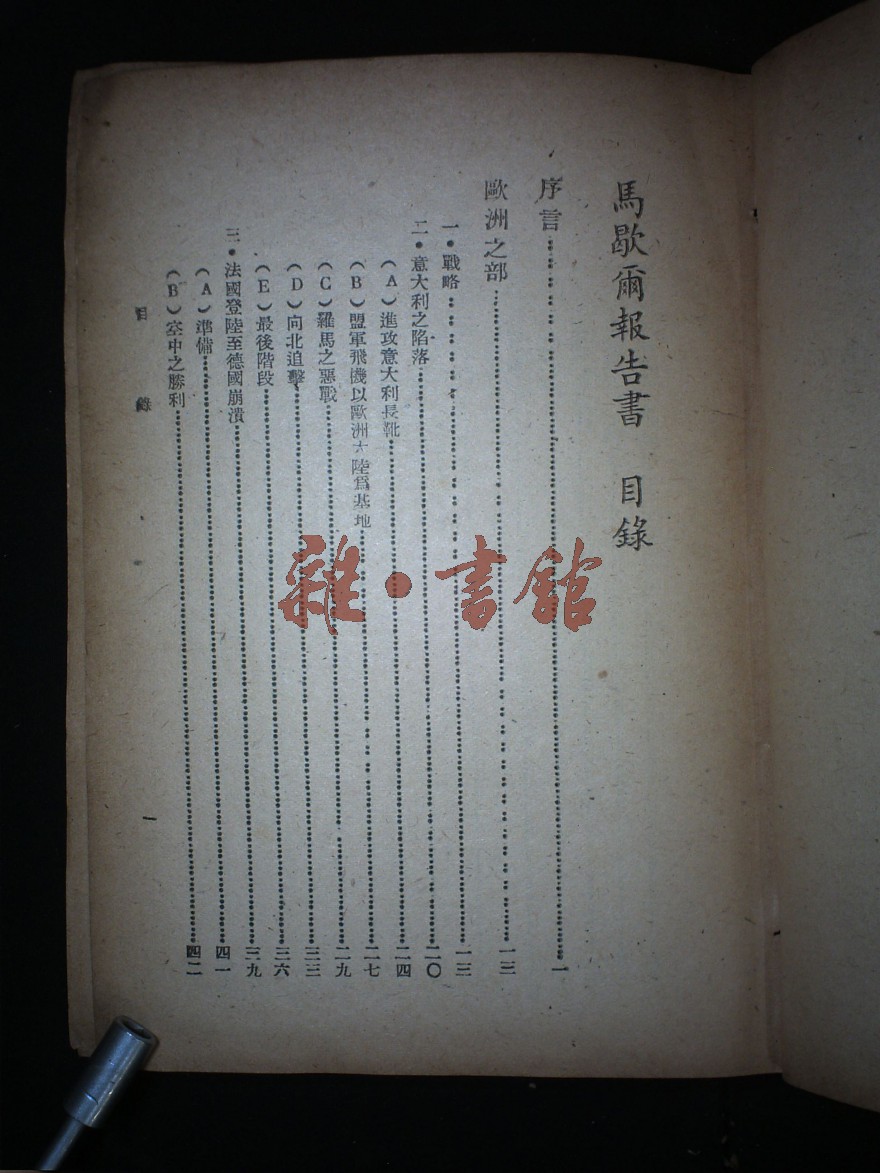 馬歇爾報告書　目錄
序言……一
歐洲之部……一三
一・戰略……一三
二・意大利之陷落……二〇
（A）進攻意大利長靴……二四
（B）盟軍飛機以歐洲大陸爲基地……二七
（C）羅馬之惡戰……二九
（D）向北追擊……三三
（E）最後階段……三六
三・法國登陸至德國崩潰……三九
（A）準備……四一
（B）空中之勝利……四二
目　錄
一
雜・書館